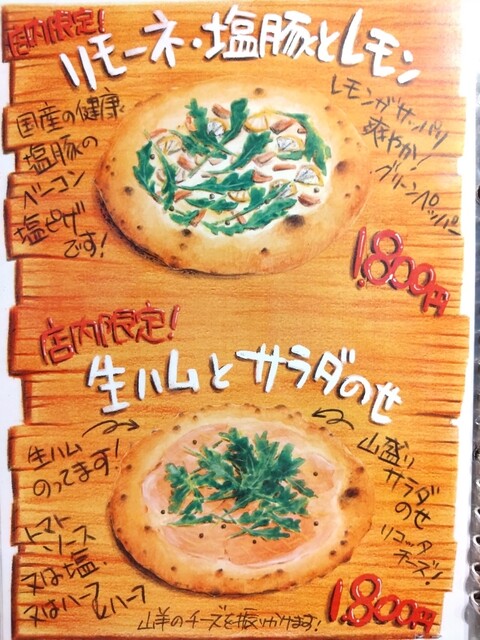 店内限定!
リモーネ・塩豚とレモン
国産の健康
塩豚の
ベーコン
塩ピザ
です!
レモンがサッパリ
爽やか!
グリーンペッパー
1.800円
店内限定!
生ハムとサラダのせ
生ハム
のってます!
トマト
ソース
又は塩.
又はハーフ&ハーフ
山盛り
サラダ
のせ
リコッタ
チーズ!
山羊のチーズを振りかけます!
1.800円